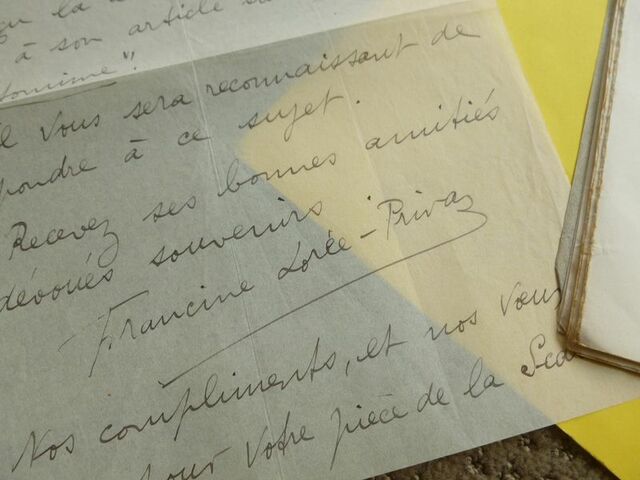 à son article su
tomime".
Il vous sera reconnaissant de
pondre à ce sujet.
Recevez ses bonnes amitiés
dévoués souvenirs.
Francine Lorée-Privas
Nos compliments, et nos vœux
pour votre pièce de la